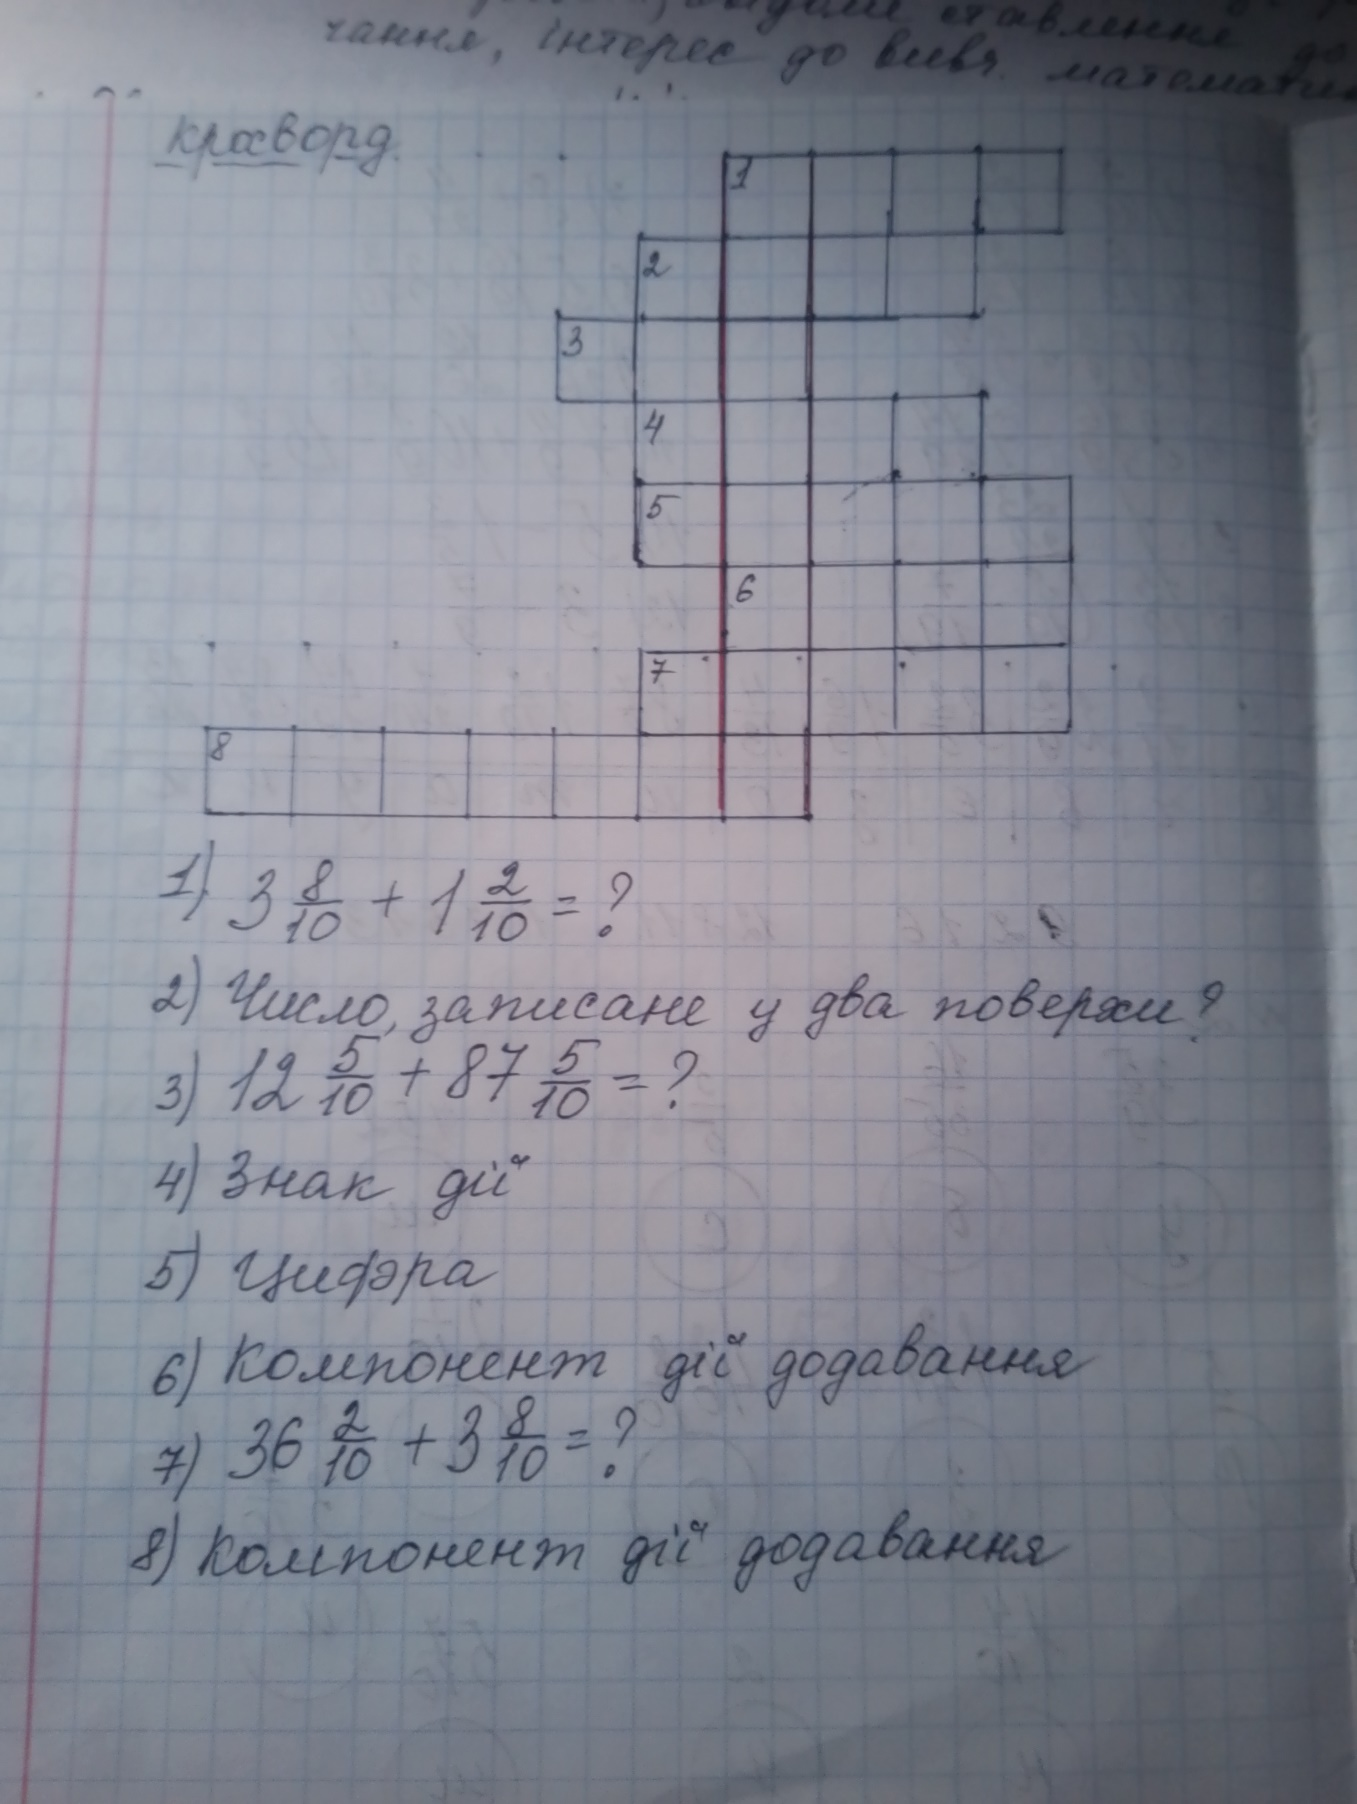 ставлення до
чання, інтерес до вивч. математи
Кросворд.
1
2
3
4
5
6
7
8
1) 3 8/10 + 1 2/10 = ?
2) Число, записане у два поверхи?
3) 12 5/10 + 87 5/10 = ?
4) Знак дії
5) Цифра
6) Компонент дії додавання
7) 36 2/10 + 3 8/10 = ?
8) Компонент дії додавання